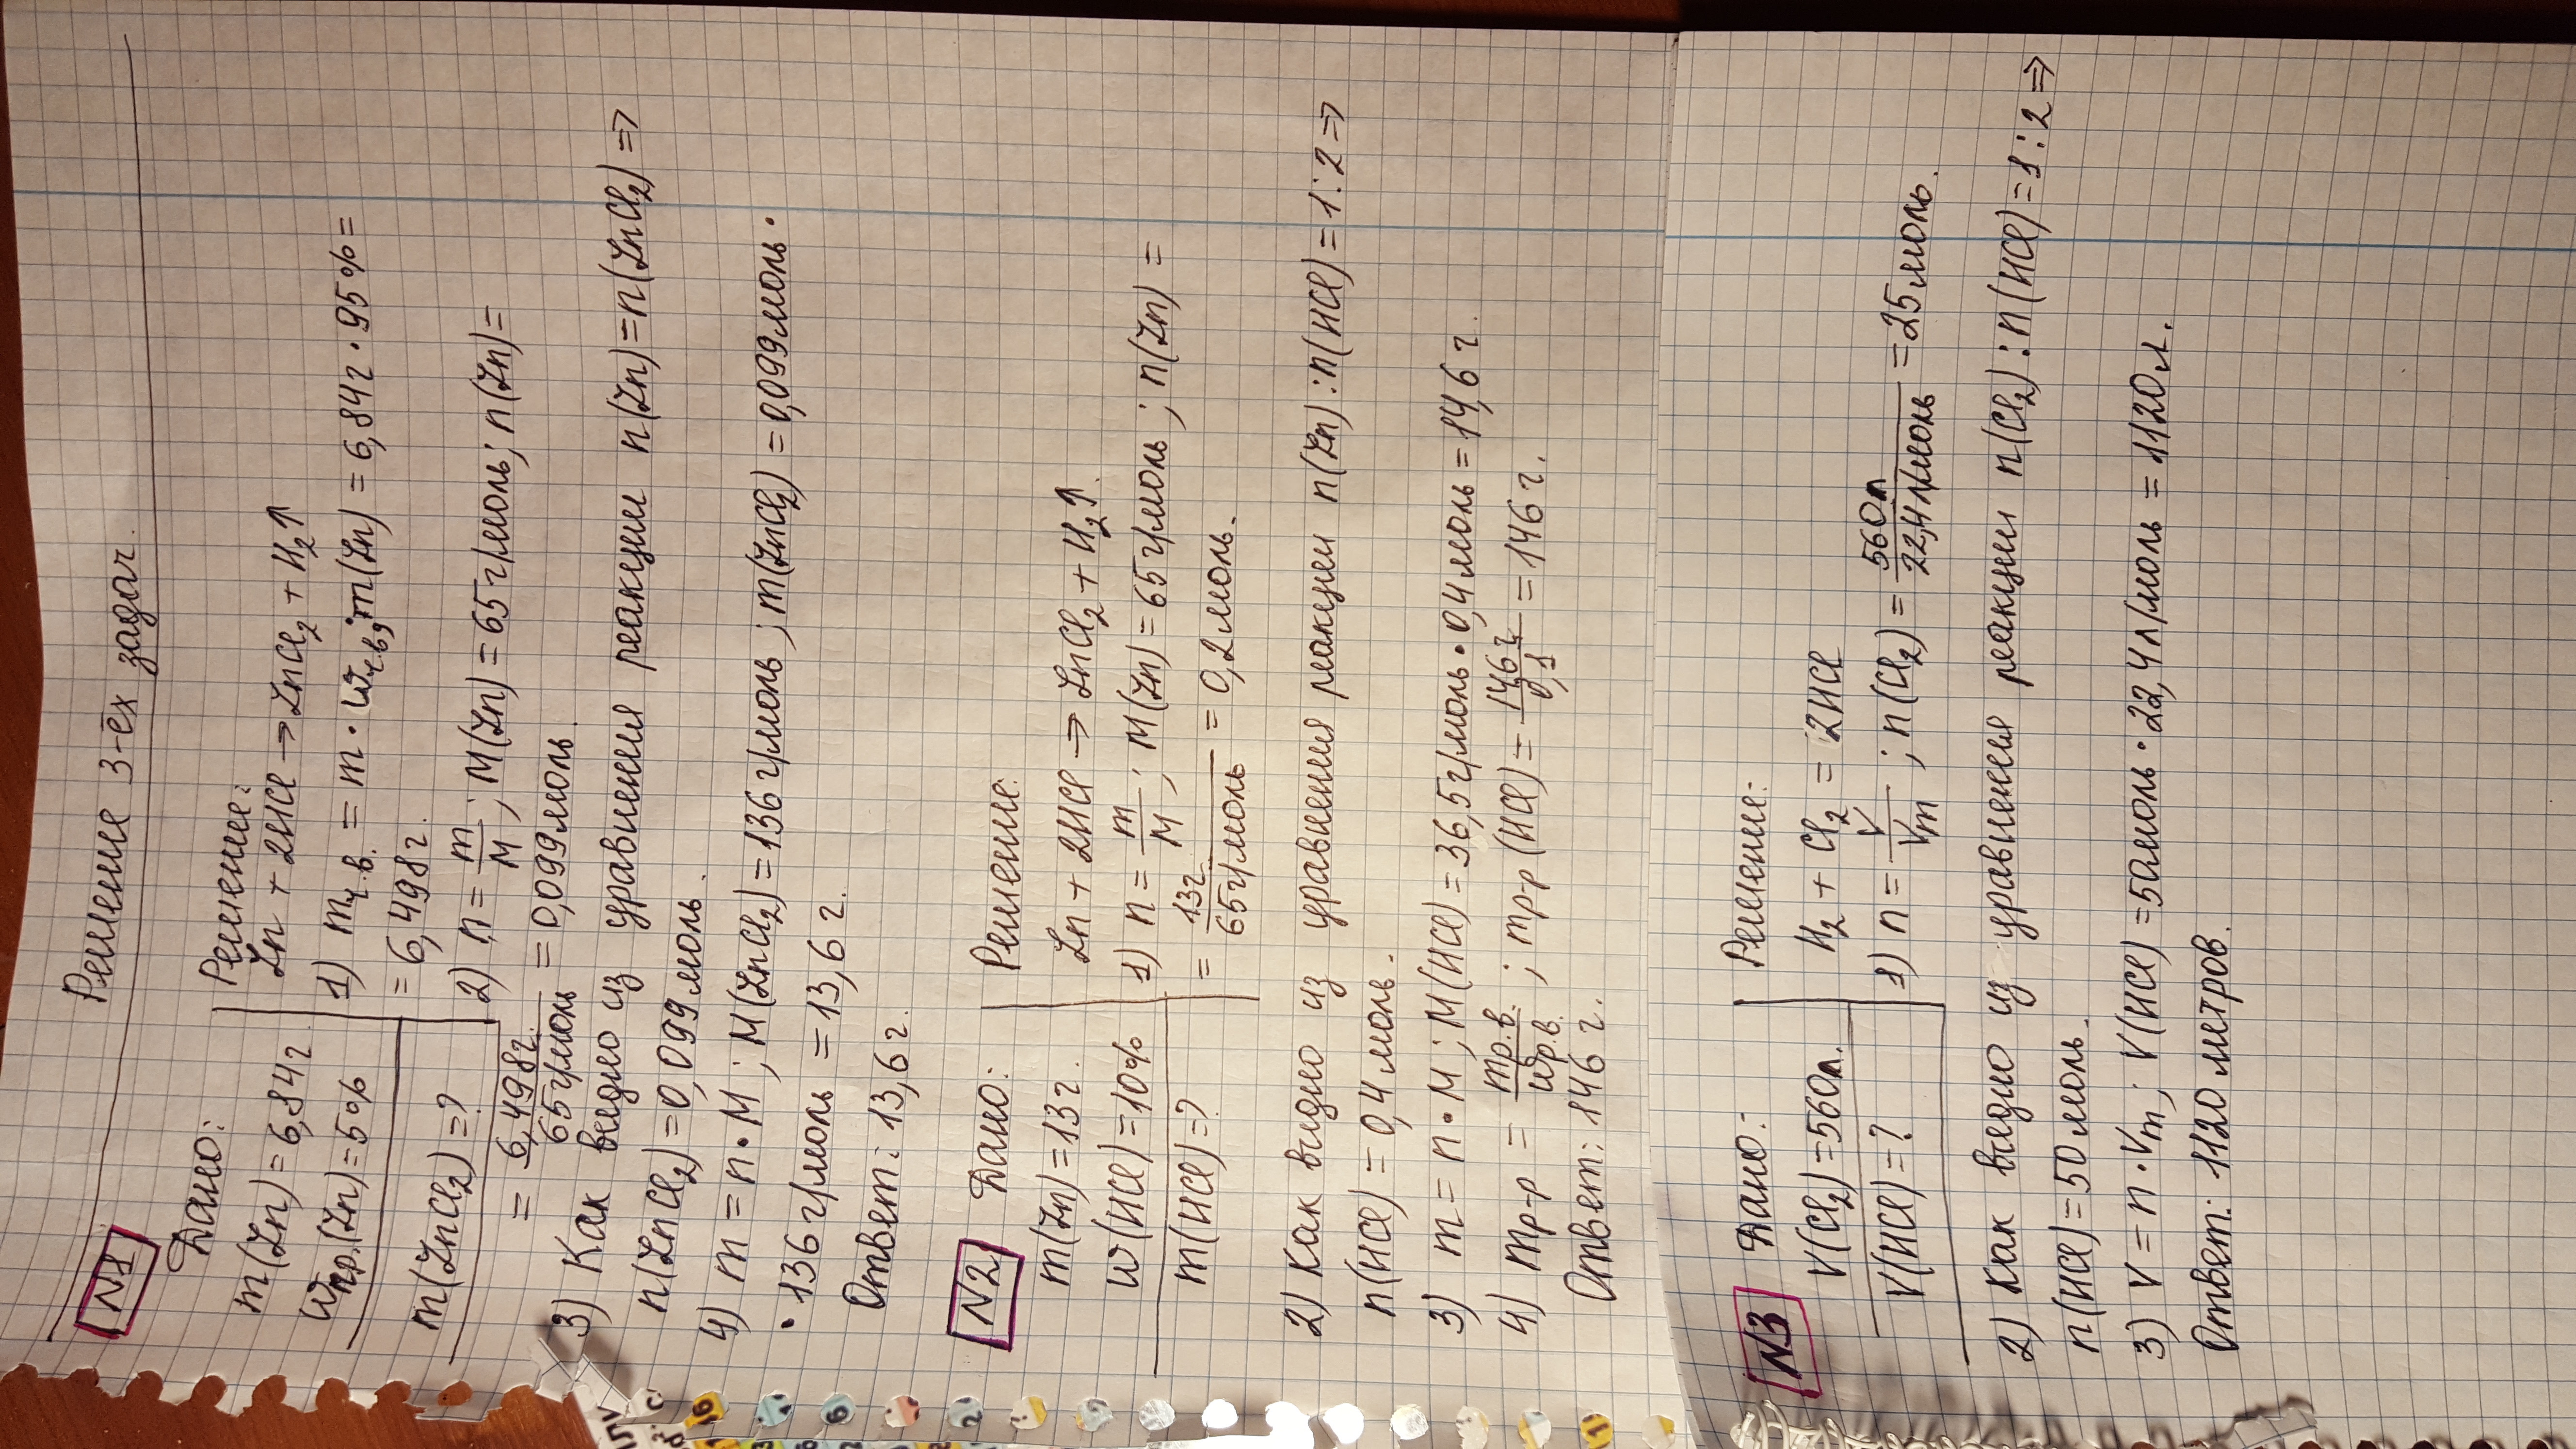 Решение 3-ех задач.
N1
Дано:
m(Zn)=6,84г.
wпр.(Zn)=5%
m(ZnCl₂)=?
Решение:
Zn + 2HCl → ZnCl₂ + H₂↑
1) mч.в. = m · wч.в; m(Zn) = 6,84г · 95% =
= 6,498г.
2) n = m/M ; M(Zn) = 65г/моль; n(Zn)=
= 6,498г./65г/моль = 0,099моль.
3) Как видно из уравнения реакции n(Zn)=n(ZnCl₂) ⇒
n(ZnCl₂)=0,099 моль.
4) m = n·M ; M(ZnCl₂)=136г/моль ; m(ZnCl₂)=0,099моль ·
· 136г/моль = 13,6г.
Ответ: 13,6г.
N2
Дано:
m(Zn)=13г.
w(HCl)=10%
m(HCl)=?
Решение:
Zn + 2HCl → ZnCl₂ + H₂↑.
1) n = m/M ; M(Zn)=65г/моль ; n(Zn) =
= 13г./65г/моль = 0,2моль.
2) Как видно из уравнения реакции n(Zn):n(HCl)=1:2 ⇒
n(HCl)=0,4моль.
3) m = n·M ; M(HCl)=36,5г/моль·0,4моль=14,6г.
4) mр-р = mр.в./wр.в. ; mр-р(HCl)= 14,6г/0,1 = 146г.
Ответ: 146г.
N3
Дано:
V(Cl₂)=560л.
V(HCl)=?
Решение:
H₂ + Cl₂ = 2HCl
1) n = V/Vm ; n(Cl₂)= 560л/22,4л/моль = 25моль.
2) Как видно из уравнения реакции n(Cl₂):n(HCl)=1:2 ⇒
n(HCl)=50моль.
3) V = n·Vm ; V(HCl)=50моль·22,4л/моль = 1120л.
Ответ: 1120 литров.